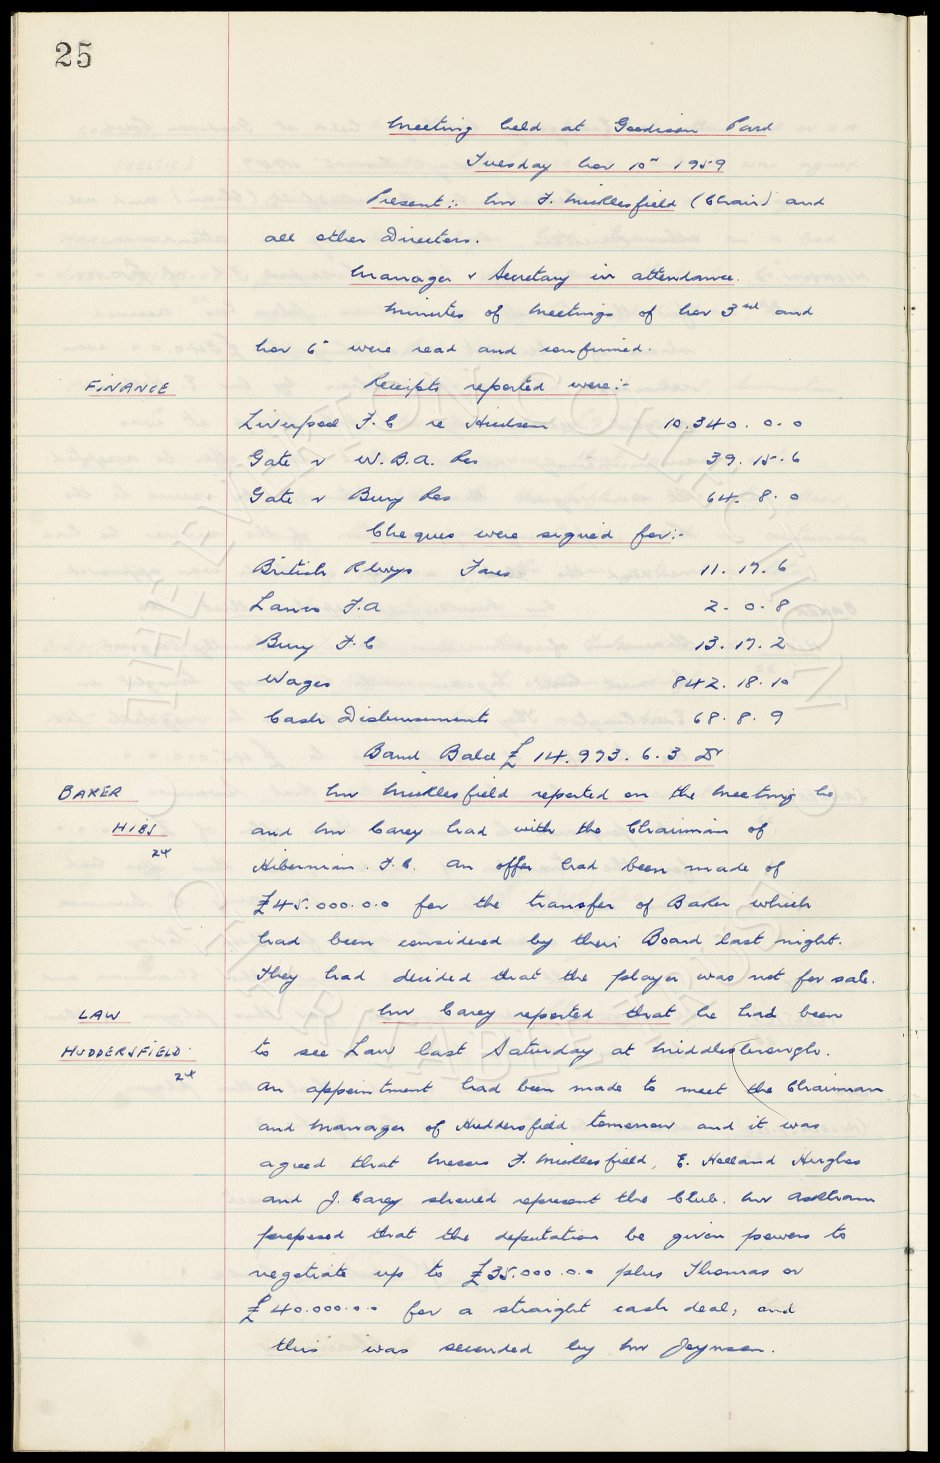 25
Meeting held at Goodison Park
Tuesday Nov 10th 1959
Present:- Mr F. Micklesfield (Chair) and
all other Directors.
Manager & Secretary in attendance.
Minutes of Meetings of Nov 3rd and
Nov 6th were read and confirmed.
FINANCE Receipts reported were:-
Liverpool F.C re Hickson 10,340. 0. 0
Gate v W.B.A. Res 39. 15. 6
Gate v Bury Res 64. 8. 0
Cheques were signed for:-
British Rlwys Fares 11. 17. 6
Lancs F.A 2. 0. 8
Bury F.C 13. 17. 2
Wages 842. 18. 10
Cash Disbursements 68. 8. 9
Bank Balce £14,973. 6. 3 Dr
BAKER Mr Micklesfield reported on the meeting he
HIBS and Mr Carey had with the Chairman of
24
Hibernian F.C. An offer had been made of
£45,000.0.0 for the transfer of Baker which
had been considered by their Board last night.
They had decided that the player was not for sale.
LAW Mr Carey reported that he had been
HUDDERSFIELD to see Law last Saturday at Middlesbrough.
24
An appointment had been made to meet the Chairman
and Manager of Huddersfield tomorrow and it was
agreed that Messrs F. Micklesfield, E. Holland Hughes
and J. Carey should represent the Club. Mr Askham
proposed that the deputation be given powers to
negotiate up to £35,000.0.0 plus Thomas or
£40,000.0.0 for a straight cash deal, and
this was seconded by Mr Joynson.
EVERTON COLLECTION
CHARITABLE TRUST